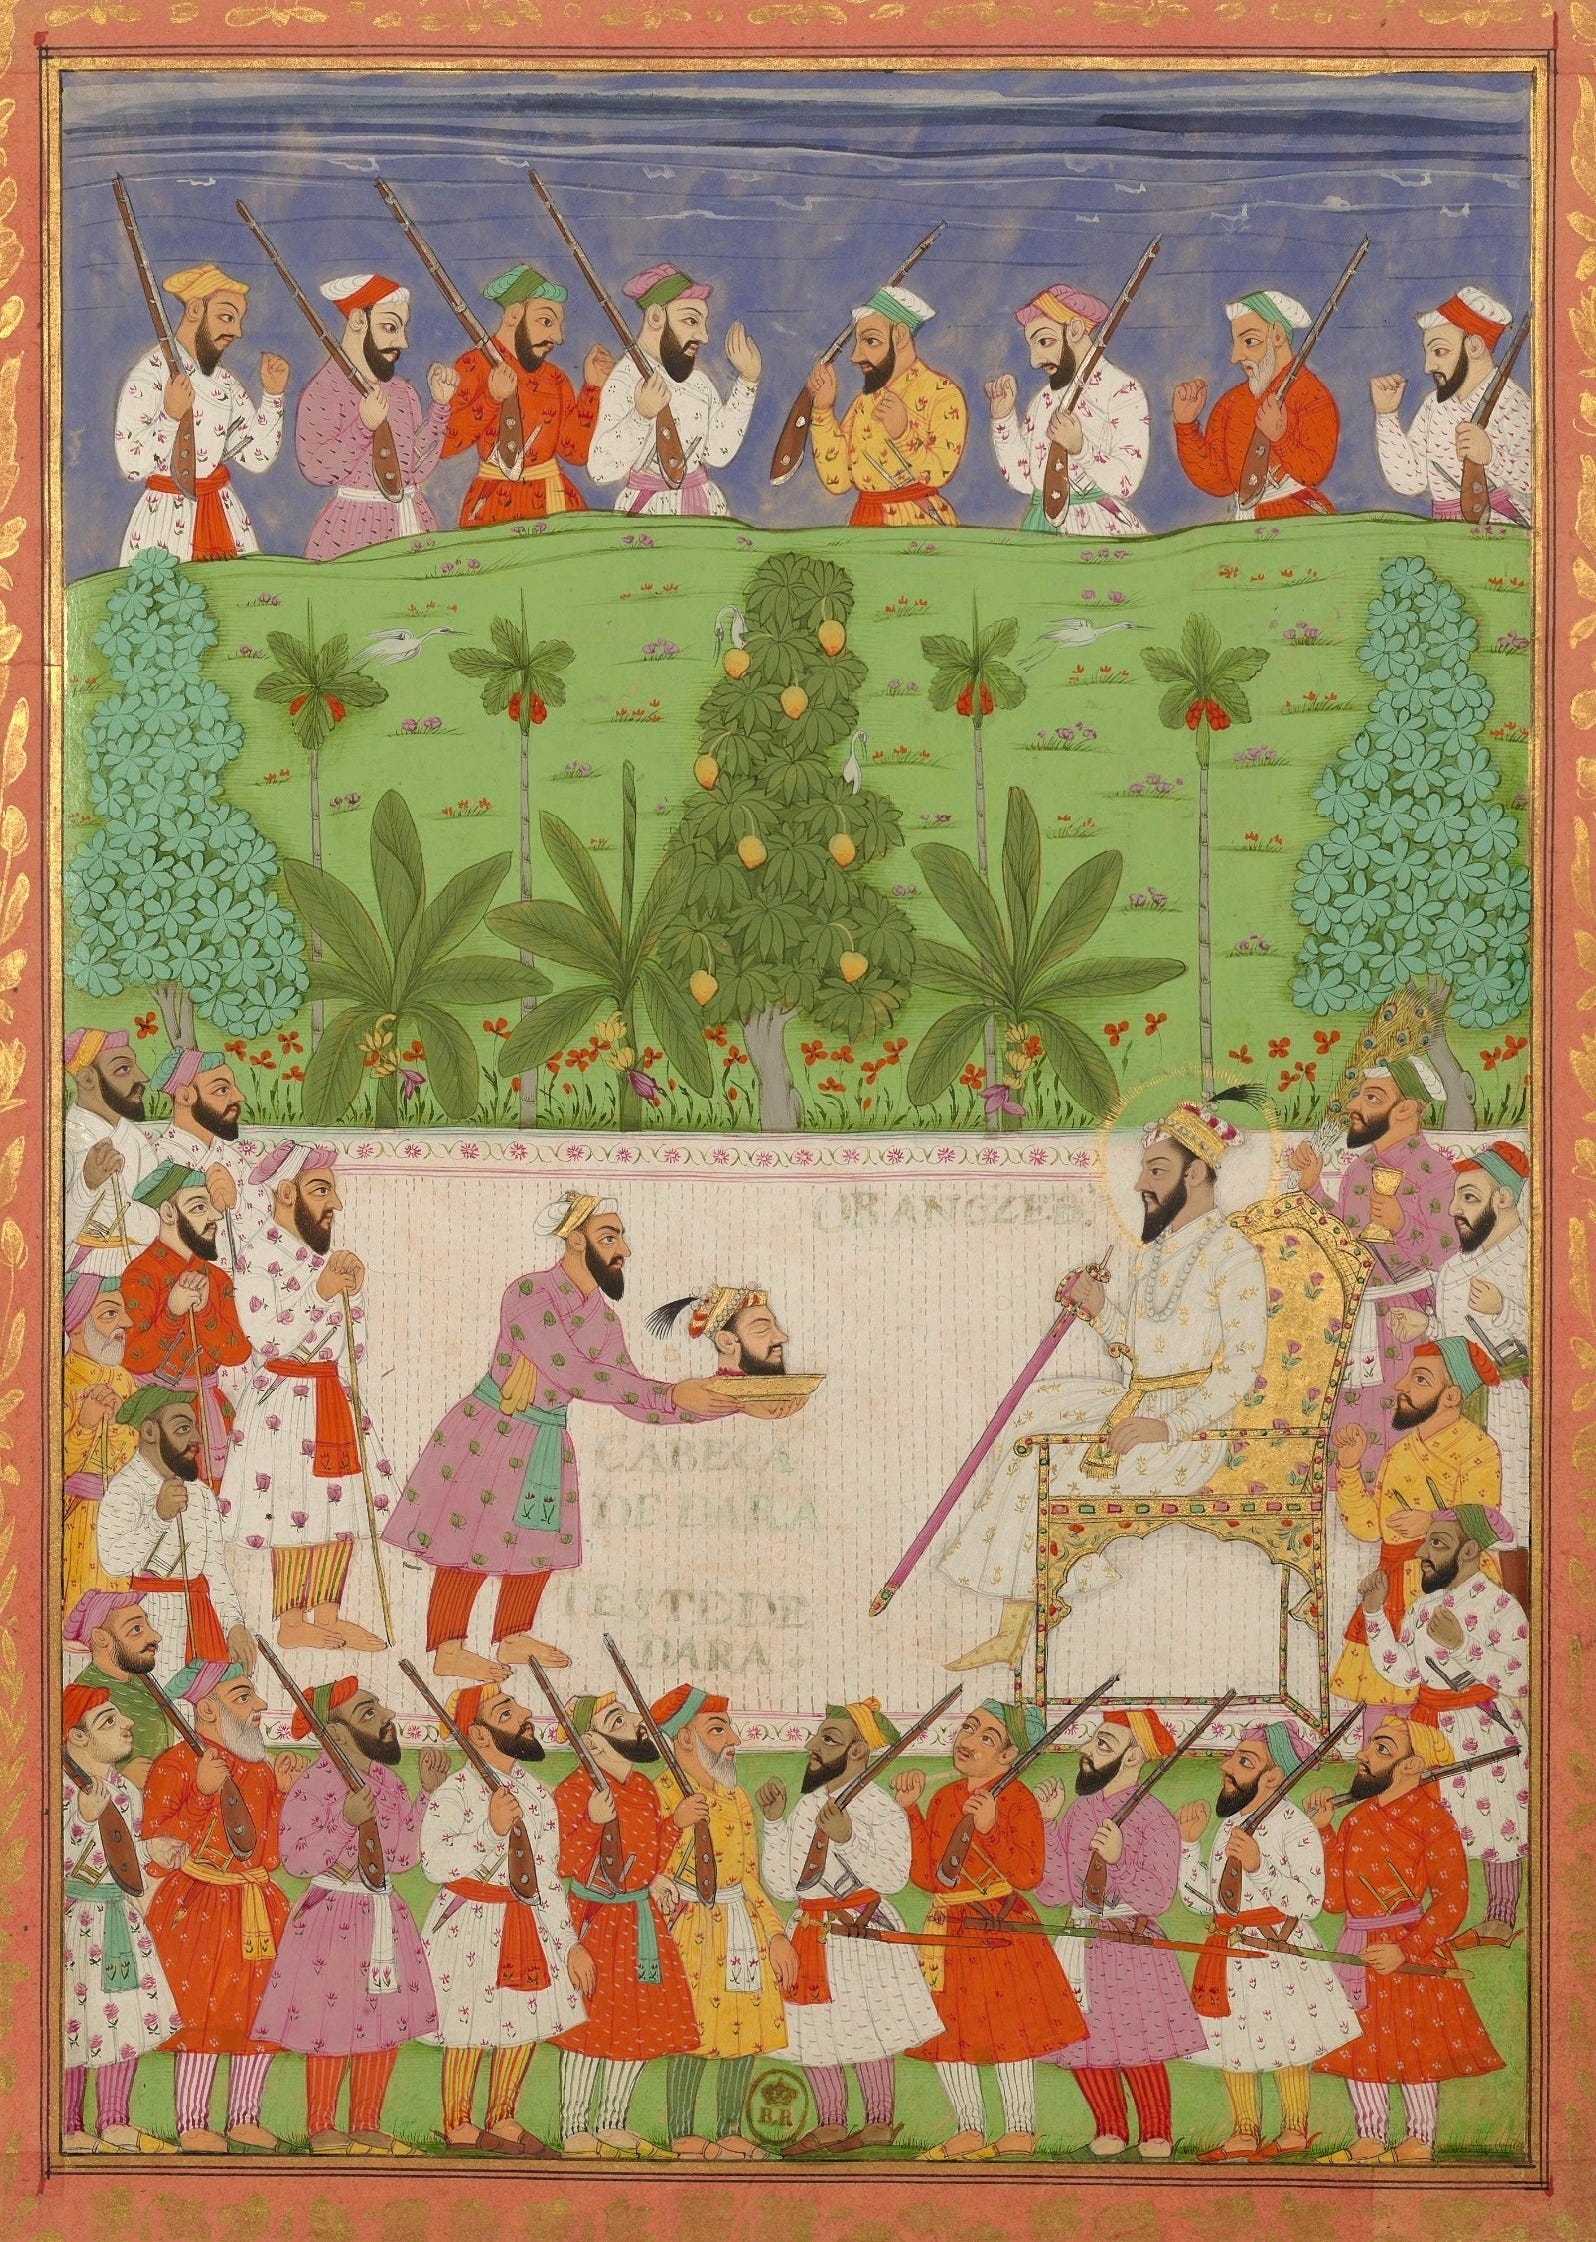 ORANGZEB
CABECA
DE DARA
TESTE DE
DARA
B.R